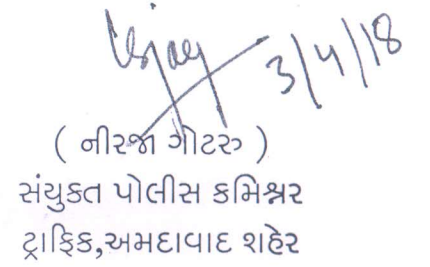 3/4/18
( નીરજા ગોટરુ )
સંયુક્ત પોલીસ કમિશ્નર
ટ્રાફિક,અમદાવાદ શહેર